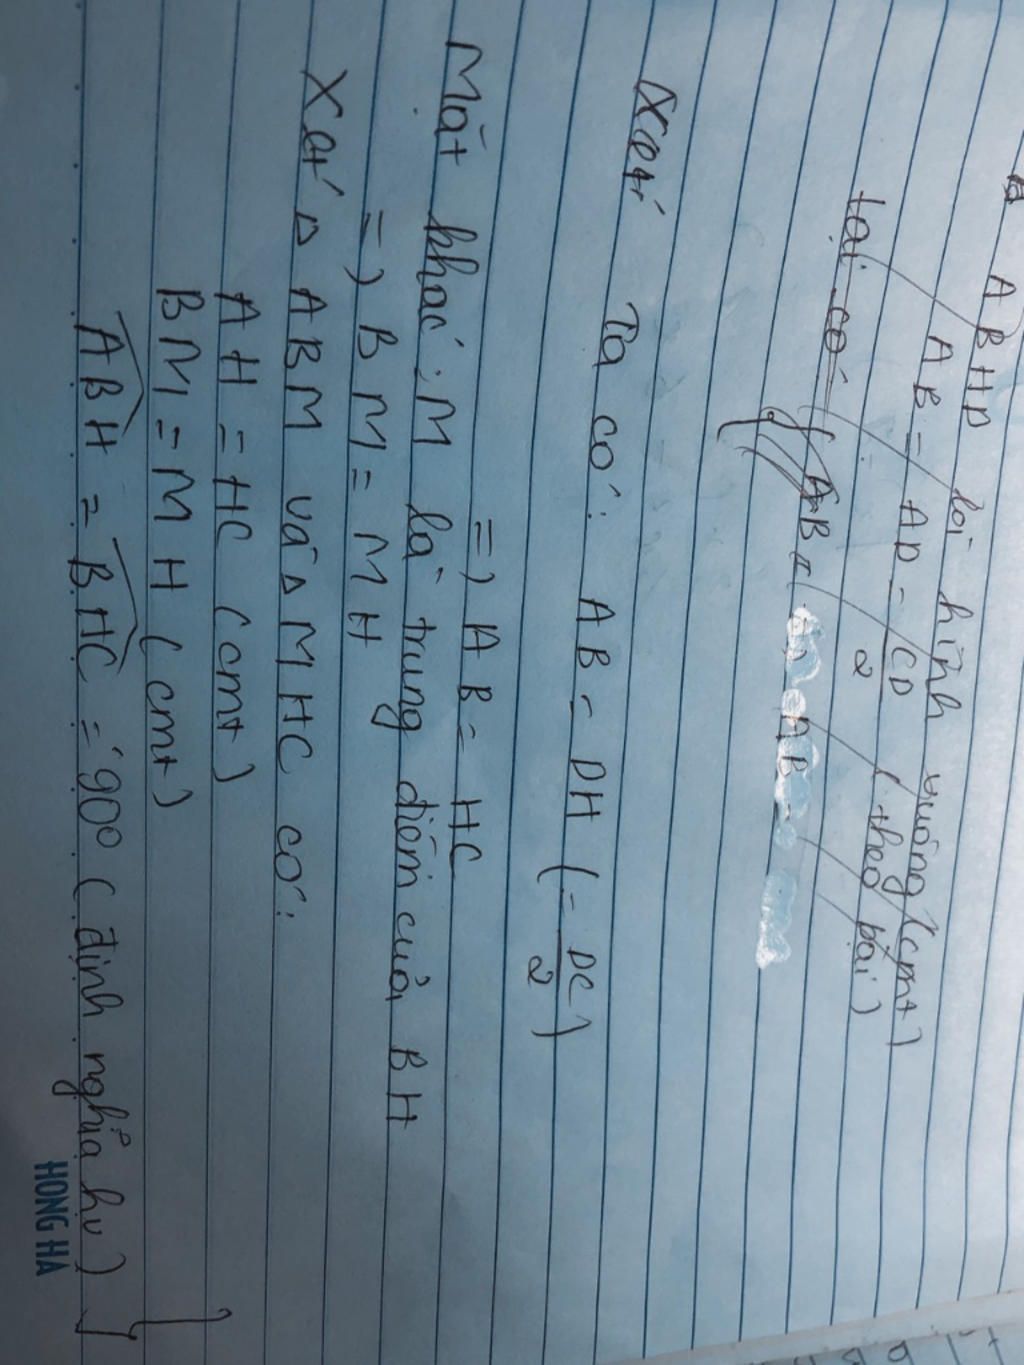 ABHD là hình vuông (cmt)
AB = AD = CD/2 (theo bài)
tại có
AB = AB
Xét Ta có: AB = DH (= DC/2)
=) AB = HC
Mặt khác: M là trung điểm của BH
=) BM = MH
Xét Δ ABM và Δ MHC có:
AH = HC (cmt)
BM = MH (cmt)
ABH = BHC = 90° (định nghĩa hv)
HONG HA